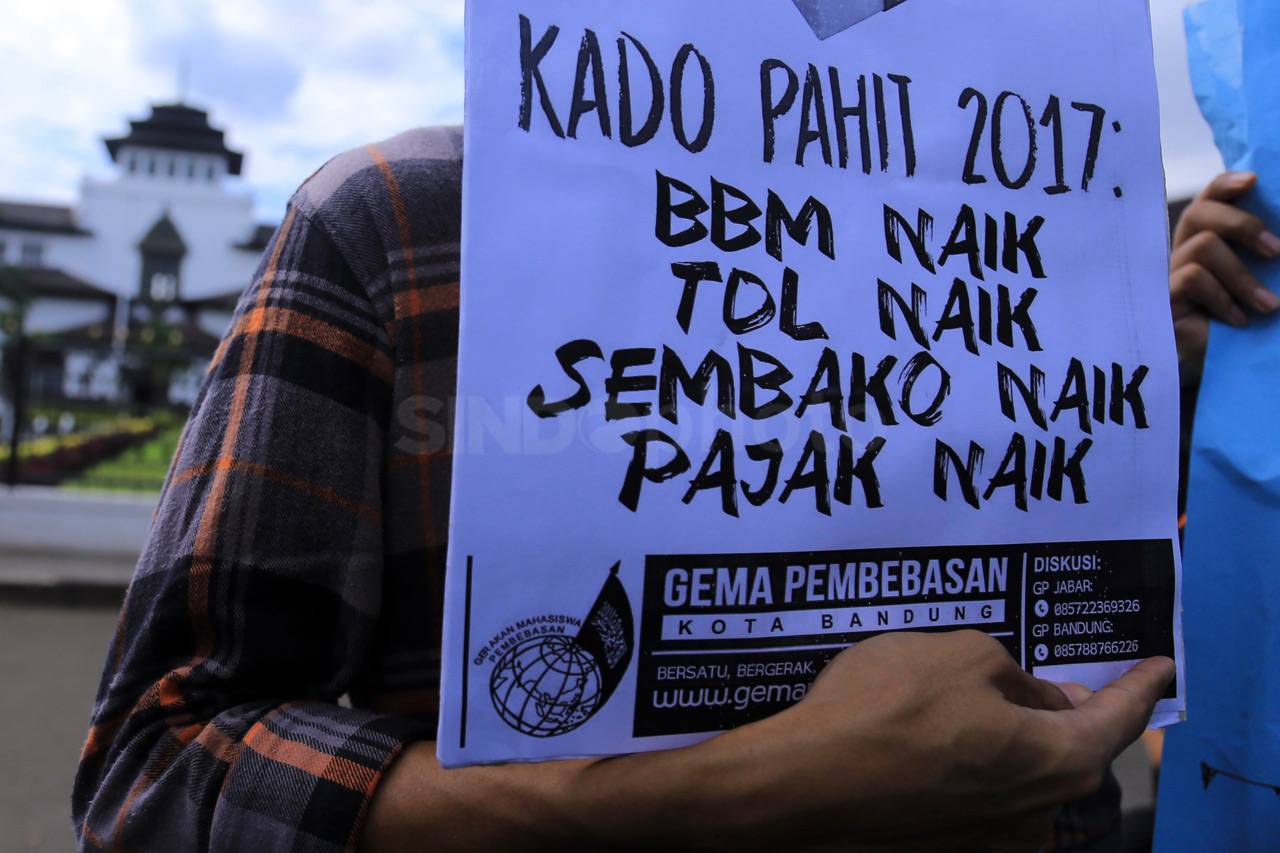 KADO PAHIT 2017:
BBM NAIK
TOL NAIK
SEMBAKO NAIK
PAJAK NAIK
SINDOphoto
GERAKAN MAHASISWA
PEMBEBASAN
GEMA PEMBEBASAN
KOTA BANDUNG
BERSATU, BERGERAK,
www.gema
DISKUSI:
GP JABAR:
085722369326
GP BANDUNG:
085788766226